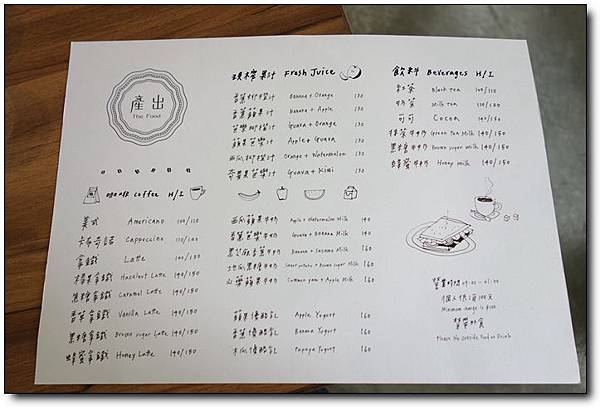 產出
The Food
咖啡 Coffee H/I
美式 Americano 100/110
卡布奇諾 Cappuccino 120/130
拿鐵 Latte 120/130
榛果拿鐵 Hazelnut Latte 140/150
焦糖拿鐵 Caramel Latte 140/150
香草拿鐵 Vanilla Latte 140/150
黑糖拿鐵 Brown sugar Latte 140/150
蜂蜜拿鐵 Honey Latte 140/150
現榨果汁 Fresh Juice
香蕉柳橙汁 Banana + Orange 130
香蕉蘋果汁 Banana + Apple 130
芭樂柳橙汁 Guava + Orange 130
蘋果芭樂汁 Apple + Guava 130
西瓜柳橙汁 Orange + Watermelon 130
奇異果芭樂汁 Guava + Kiwi 130
西瓜蘋果牛奶 Apple + Watermelon Milk 140
香蕉芭樂牛奶 Guava + Banana Milk 140
黑芝麻香蕉牛奶 Banana + Sesame Milk 160
地瓜黑糖牛奶 Sweet potato + Brown sugar Milk 160
山藥蘋果牛奶 Common yam + Apple Milk 160
蘋果優酪乳 Apple Yogurt 160
香蕉優酪乳 Banana Yogurt 160
木瓜優酪乳 Papaya Yogurt 160
飲料 Beverages H/I
紅茶 Black Tea 100/110
奶茶 Milk Tea 120/130
可可 Cocoa 140/150
抹茶牛奶 Green Tea Milk 140/150
黑糖牛奶 Brown sugar Milk 140/150
蜂蜜牛奶 Honey Milk 140/150
營業時間
個人低消100元
Minimum charge is $100
禁帶外食
Please No outside Food or Drink